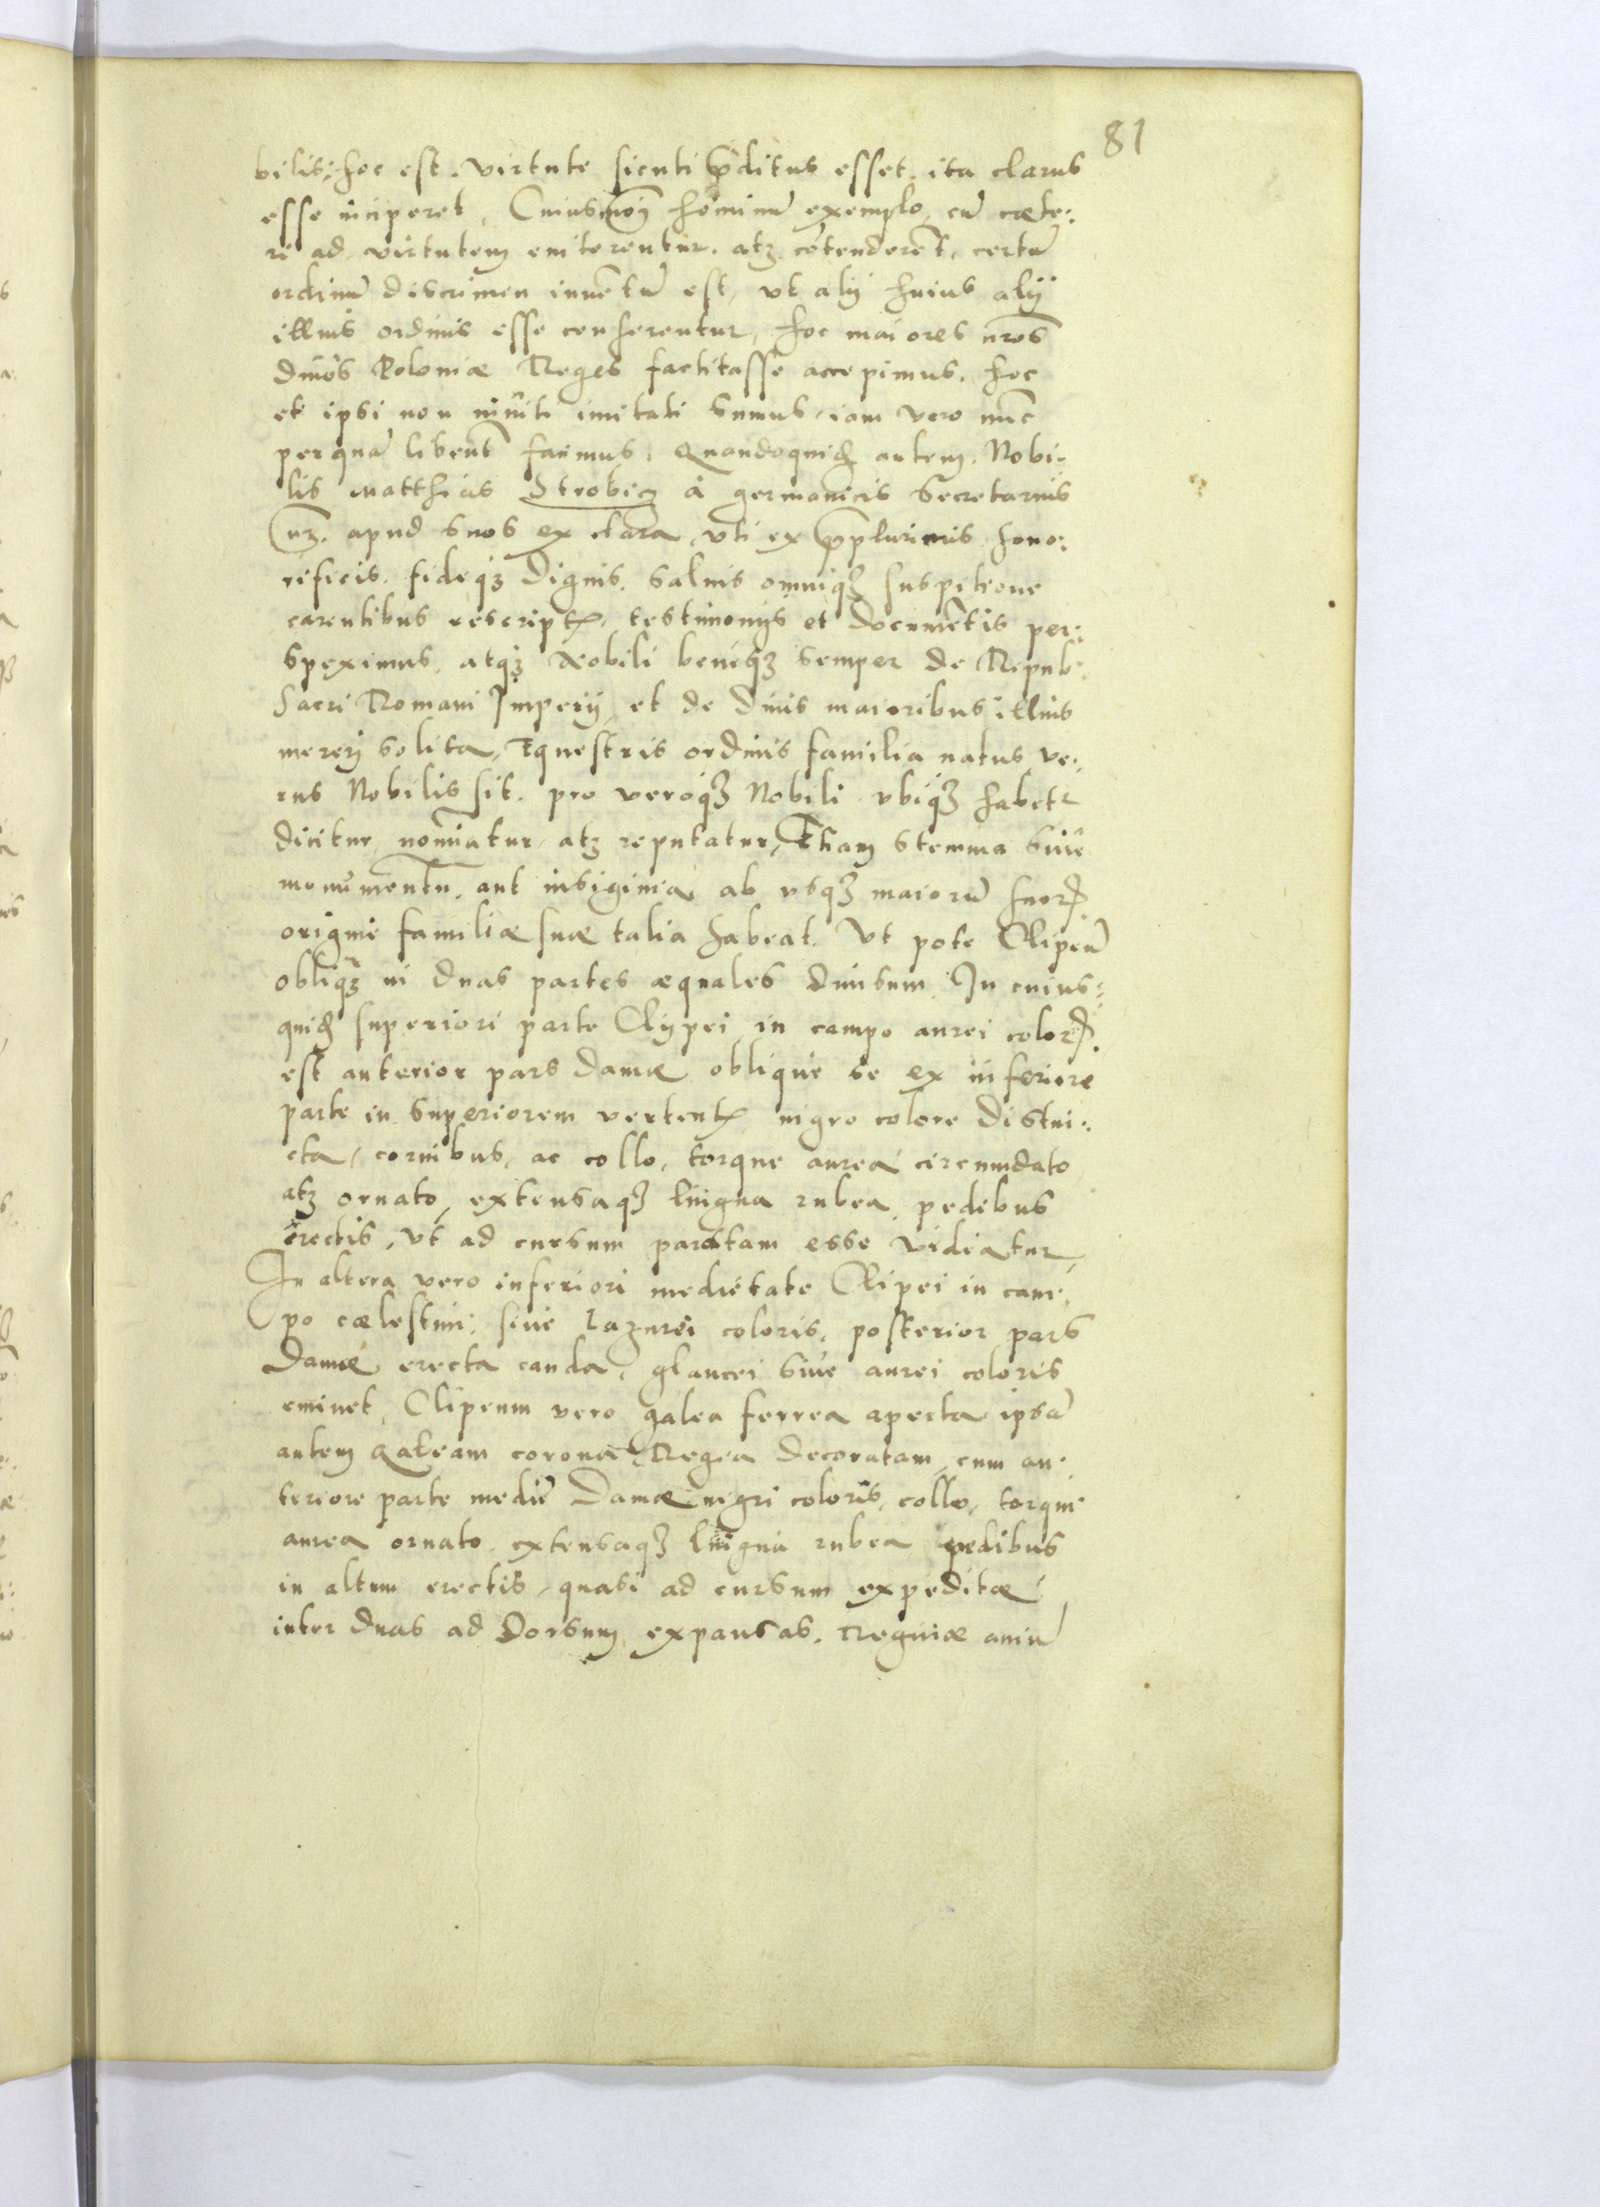 81
bilis, hoc est, virtute sicuti p̄ditus esset, ita clarus
esse inciperet, Cuiusmoi hominū exemplo, cū cæte:
ri ad virtutem eniterentur, atq; cōtenderēt, certū
ordinū discrimen inuētū est, vt alij huius alij
illius ordinis esse censerentur, hoc maiores nr̄os
diuos Poloniæ Reges factitasse accepimus, hoc
et ipsi non inuiti imitati sumus, iam vero nūc
perquā libent̄ facimus, Quandoquid autem Nobi-
lis Matthias Strobicz à germanicis Secretarius
nr̄. apud suos ex clara, vti ex q̄plurimis hono:
rificis, fideq; dignis, saluis omniq; suspitione
carentibus rescript̄, testimonijs et documētis per:
speximus, atq; Nobili beneq; semper de Repub:
Sacri Romani Imperij, et de Diuis maioribus illius
mereri solita, Equestris ordinis familia natus ve:
rus Nobilis sit, pro veroq; Nobili vbiq; habetr
dicitur, nominatur, atq; reputatur, Etiam stemma siue
monumentū, aut insignia ab vsq; maiorū suor.
origine familiæ suæ talia habeat, Vt pote Clipeū
obliq; in duas partes æquales diuisum, In cuius:
quid superiori parte Clypei, in campo aurei color.
est anterior pars Damæ oblique se ex inferiore
parte in superiorem vertent̄ nigro colore distin:
cta, cornibus, ac collo, torque aurea circumdato
atq; ornato, extensaq; lingua rubea, pedibus
erectis, vt ad cursum paratam esse videatur,
In altera vero inferiori medietate Clipei in cam
po cælestini, siue Lazurei coloris, posterior pars
Damæ erecta cauda, glaucei siue aurei coloris
eminet, Clipeum vero galea ferrea aperta ipsā
autem Galeam corona Regia decoratam, cum an:
teriore parte mediæ Damæ nigri coloris, collo, torque
aurea ornato extensaq; lingua rubea pedibus
in altum erectis, quasi ad cursum expeditæ,
inter duas ad Dorsum expansas, Reginæ auiū